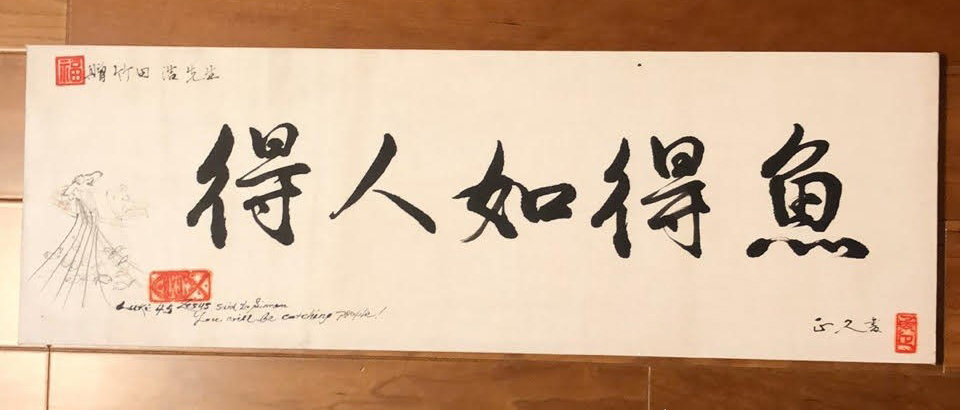 福
贈竹田 浩先生
得人如得魚
Luke 45 Jesus said to Simon
You will be catching people!
正久書